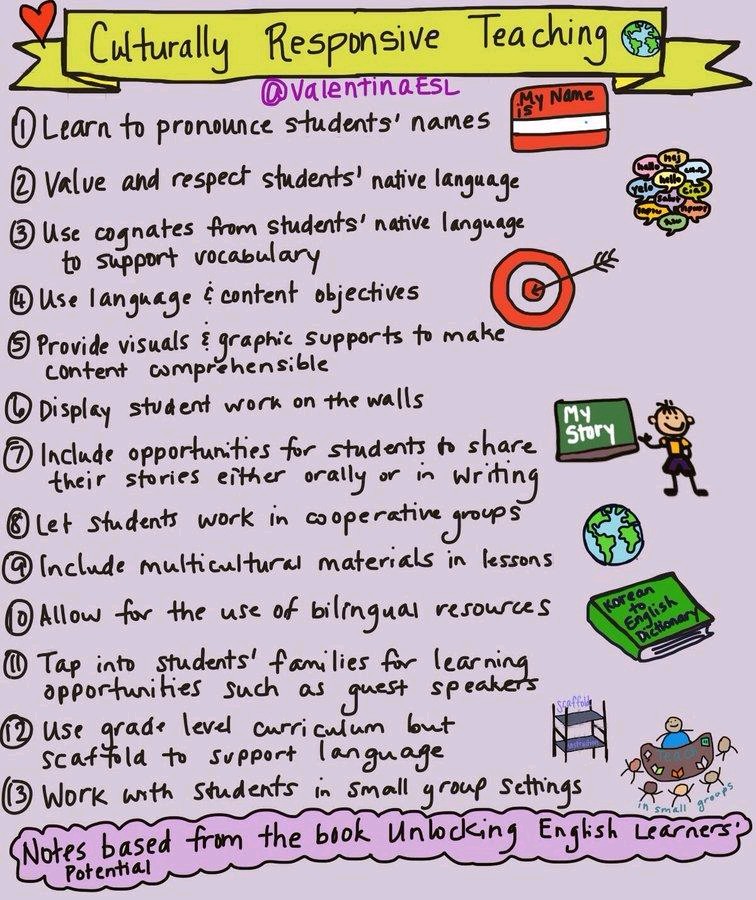 Culturally Responsive Teaching
@ValentinaESL
① Learn to pronounce students' names
My Name
is
② Value and respect students' native language
hej
hallo
hello
ciao
③ Use cognates from students' native language
to support vocabulary
④ Use language & content objectives
⑤ Provide visuals & graphic supports to make
content comprehensible
⑥ Display student work on the walls
My
Story
⑦ Include opportunities for students to share
their stories either orally or in writing
⑧ Let students work in cooperative groups
⑨ Include multicultural materials in lessons
⑩ Allow for the use of bilingual resources
Korean
to
English
Dictionary
⑪ Tap into students' families for learning
opportunities such as guest speakers
⑫ Use grade level curriculum but
scaffold to support language
scaffold
⑬ Work with students in small group settings
in small groups
Notes based from the book Unlocking English Learners'
Potential